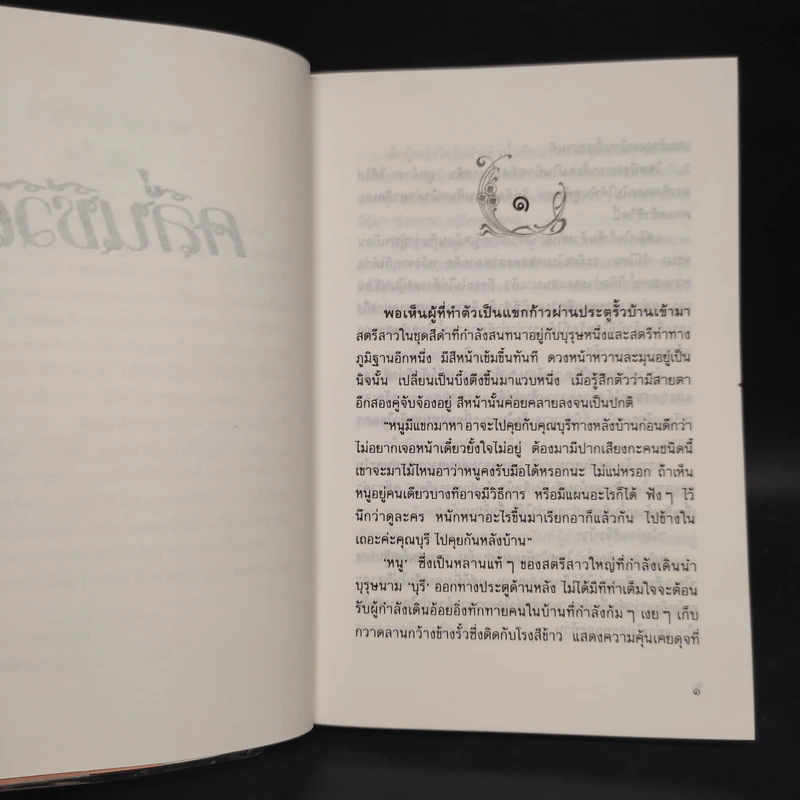 ๑
พอเห็นผู้ที่ทำตัวเป็นแขกก้าวผ่านประตูรั้วบ้านเข้ามา
สตรีสาวในชุดสีดำที่กำลังสนทนาอยู่กับบุรุษหนึ่งและสตรีท่าทาง
ภูมิฐานอีกหนึ่ง มีสีหน้าเข้มขึ้นทันที ดวงหน้าหวานละมุนอยู่เป็น
นิจนั้น เปลี่ยนเป็นบึ้งตึงขึ้นมาแวบหนึ่ง เมื่อรู้สึกตัวว่ามีสายตา
อีกสองคู่จับจ้องอยู่ สีหน้านั้นค่อยคลายลงจนเป็นปกติ
"หนูมีแขกมาหา อาจะไปคุยกับคุณบุรีทางหลังบ้านก่อนดีกว่า
ไม่อยากเจอหน้าเดี๋ยวยั้งใจไม่อยู่ ต้องมามีปากเสียงกะคนชนิดนี้
เขาจะมาไม้ไหนอาว่าหนูคงรับมือได้หรอกนะ ไม่แน่หรอก ถ้าเห็น
หนูอยู่คนเดียวบางทีอาจมีวิธีการ หรือมีแผนอะไรก็ได้ ฟัง ๆ ไว้
นึกว่าดูละคร หนักหนาอะไรขึ้นมาเรียกอาก็แล้วกัน ไปข้างใน
เถอะค่ะคุณบุรี ไปคุยกันหลังบ้าน"
'หนู' ซึ่งเป็นหลานแท้ ๆ ของสตรีสาวใหญ่ที่กำลังเดินนำ
บุรุษนาม 'บุรี' ออกทางประตูด้านหลัง ไม่ได้มีทีท่าเต็มใจจะต้อน
รับผู้กำลังเดินอ้อยอิ่งทักทายคนในบ้านที่กำลังก้ม ๆ เงย ๆ เก็บ
กวาดลานกว้างข้างรั้วซึ่งติดกับโรงสีข้าว แสดงความคุ้นเคยดุจที่
๑